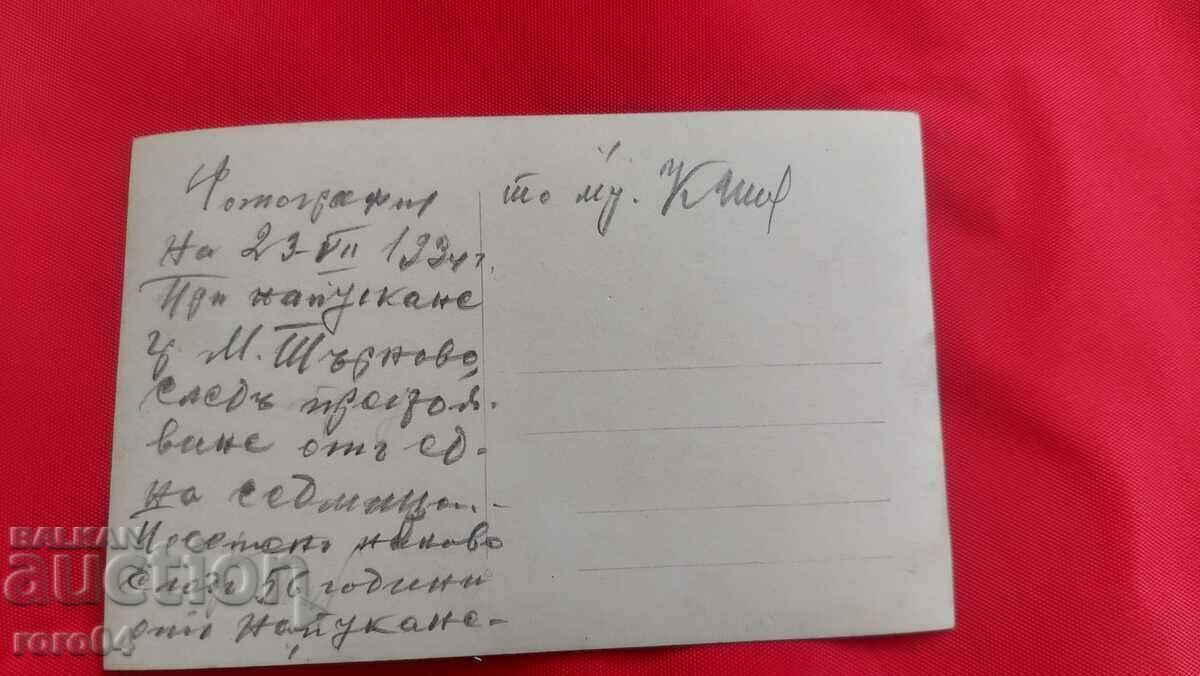 Фотография
на 23-VII 1934 г.
При напускане
гр М. Търново,
следъ престоя-
ване отъ ед-
на седмица.-
Посетенъ наново
следъ 56 години
отъ напускане-
то му.
BALKAN
auction
roro04